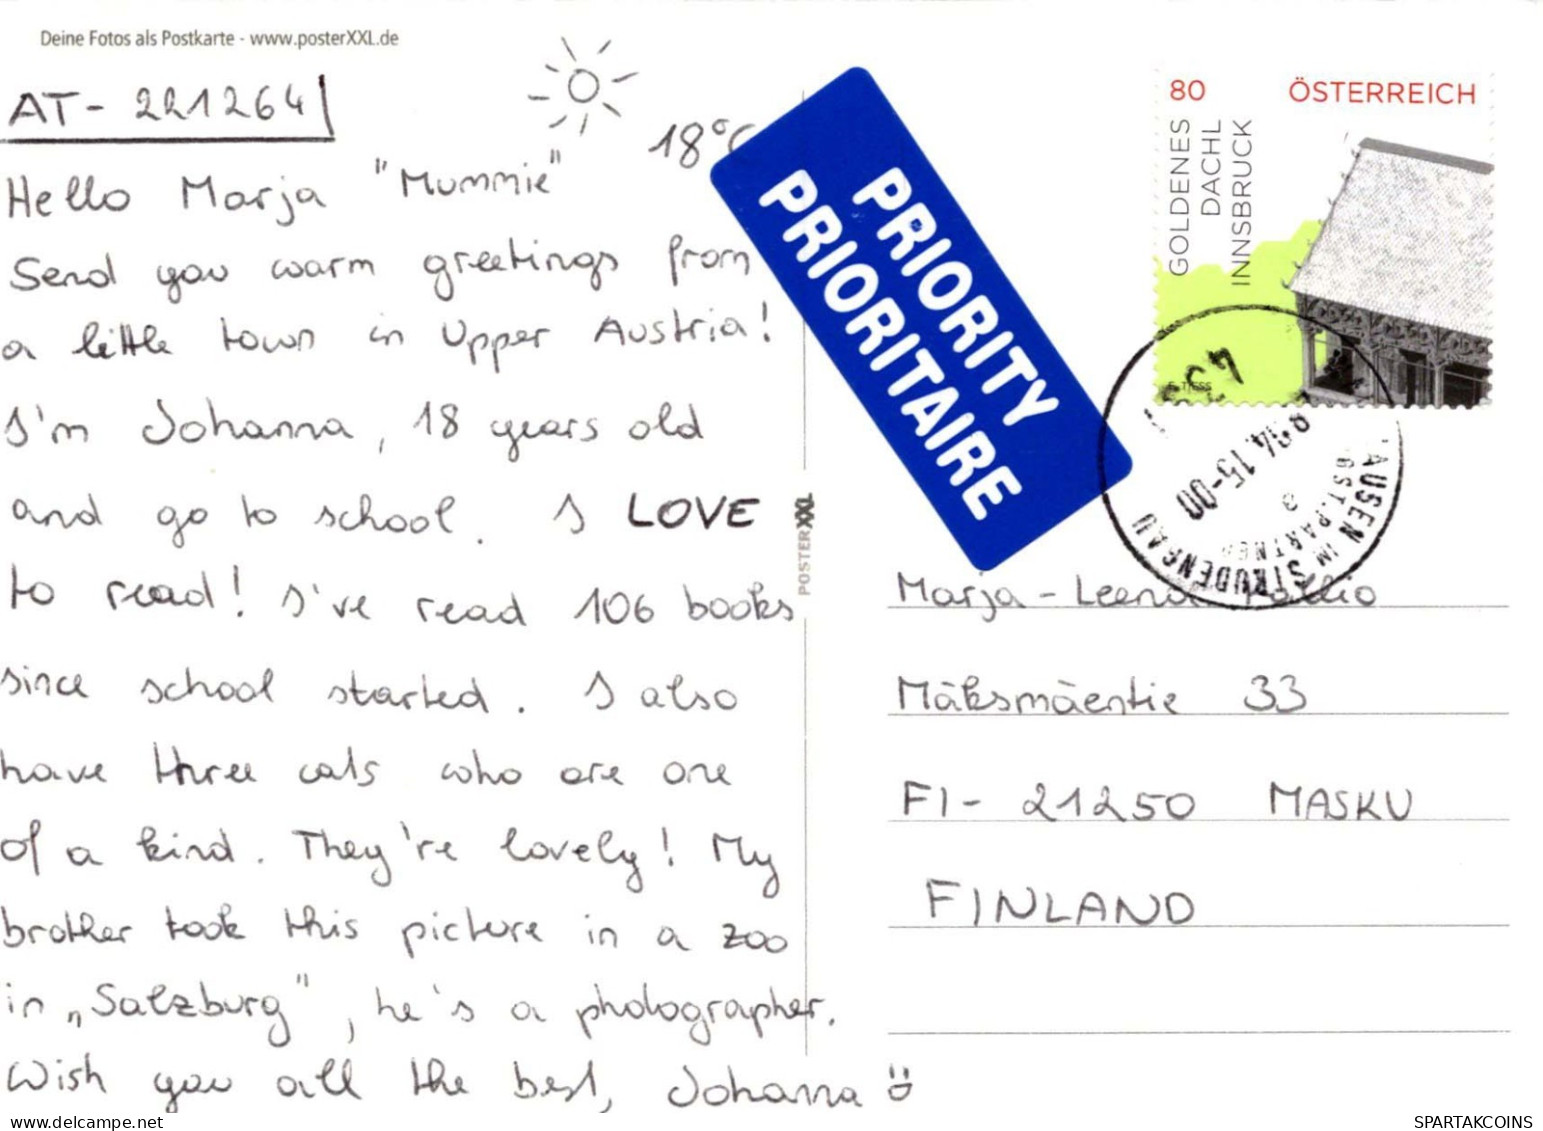 Deine Fotos als Postkarte - www.posterXXL.de
AT - 221264
18°C
Hello Marja "Mummie"
Send you warm greetings from
a little town in Upper Austria!
I'm Johanna, 18 years old
and go to school. I LOVE
to read! I've read 106 books
since school started. I also
have three cats who are one
of a kind. They're lovely! My
brother took this picture in a zoo
in „Salzburg", he's a photographer.
Wish you all the best, Johanna
POSTERXXL
PRIORITY
PRIORITAIRE
80 ÖSTERREICH
GOLDENES
DACHL
INNSBRUCK
15-00
AUSEN IM STRUDENGAU
PARTNER
Marja - Leena
Mäksmäentie 33
FI - 21250 MASKU
FINLAND
SPARTAKCOINS